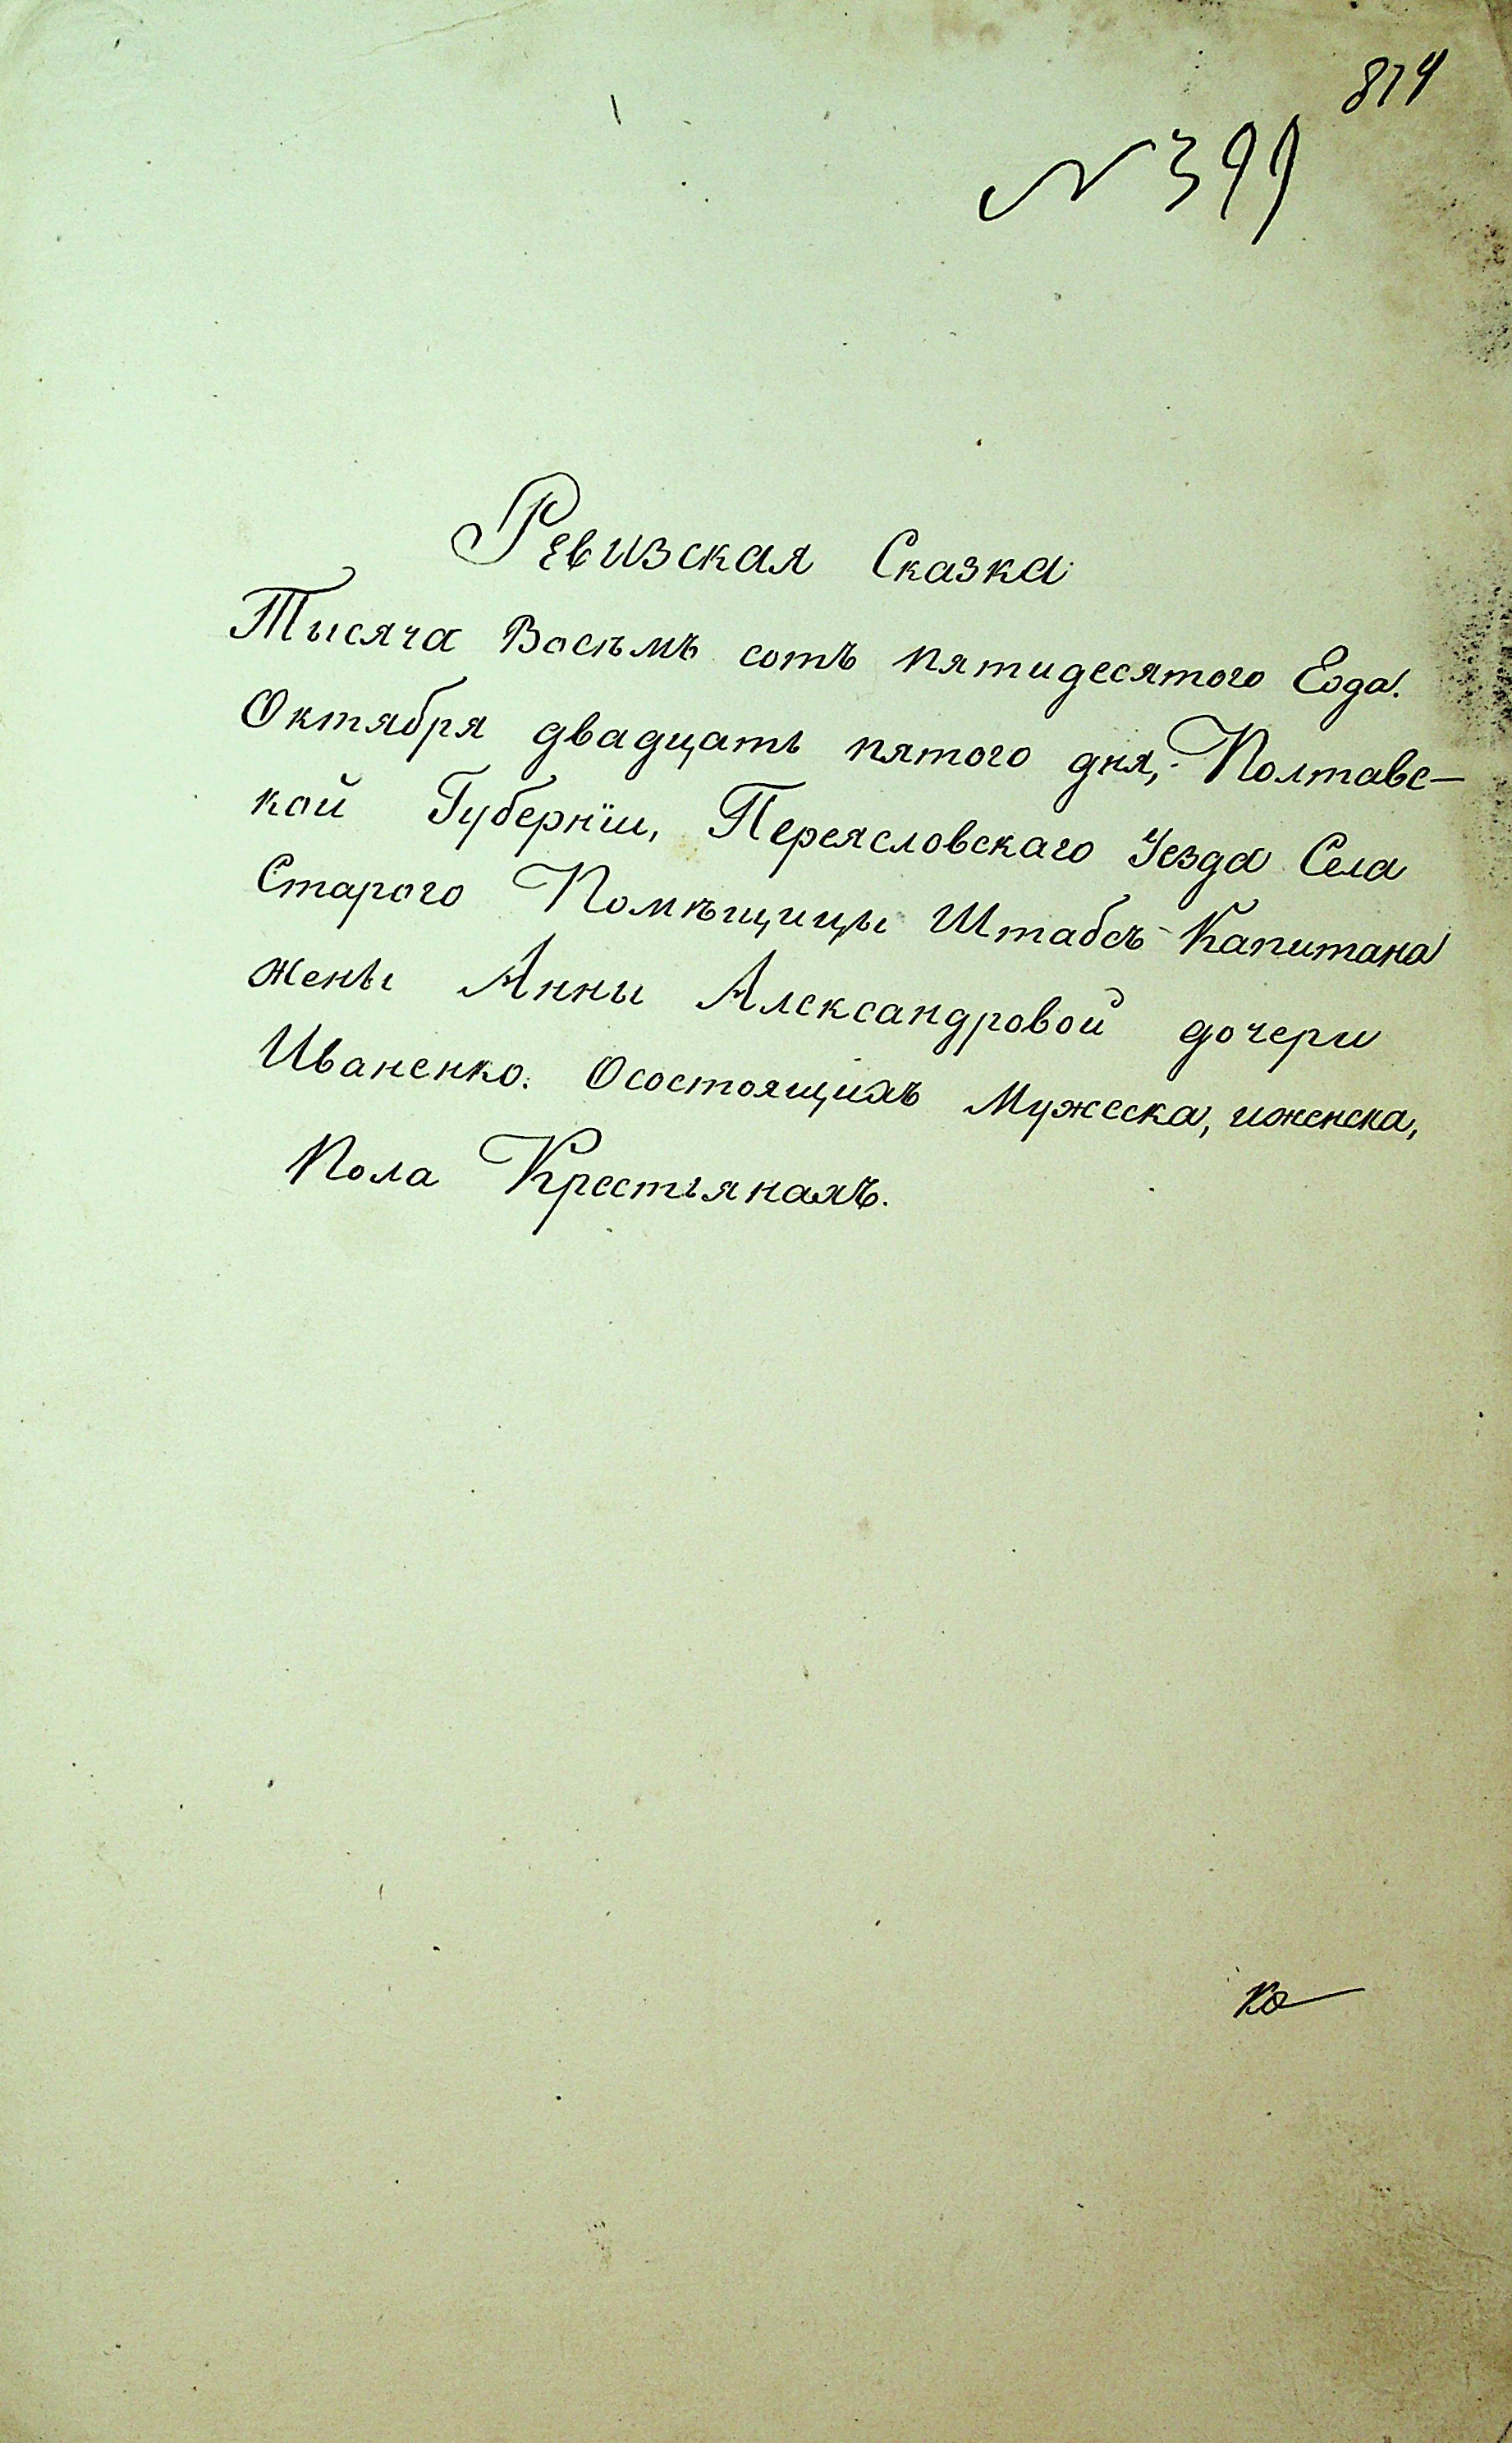 874
N 399
Ревизская Сказка
Тысяча Восѣмъ сотъ пятидесятого Года.
Октября двадцать пятого дня, Полтавс-
кой Губернїи, Переясловскаго Уезда Села
Старого Помѣщицы Штабсъ-Капитана
жены Анны Александровой дочери
Иваненко. Осостоящихъ Мужеска, иженска,
Пола Крестьянахъ.